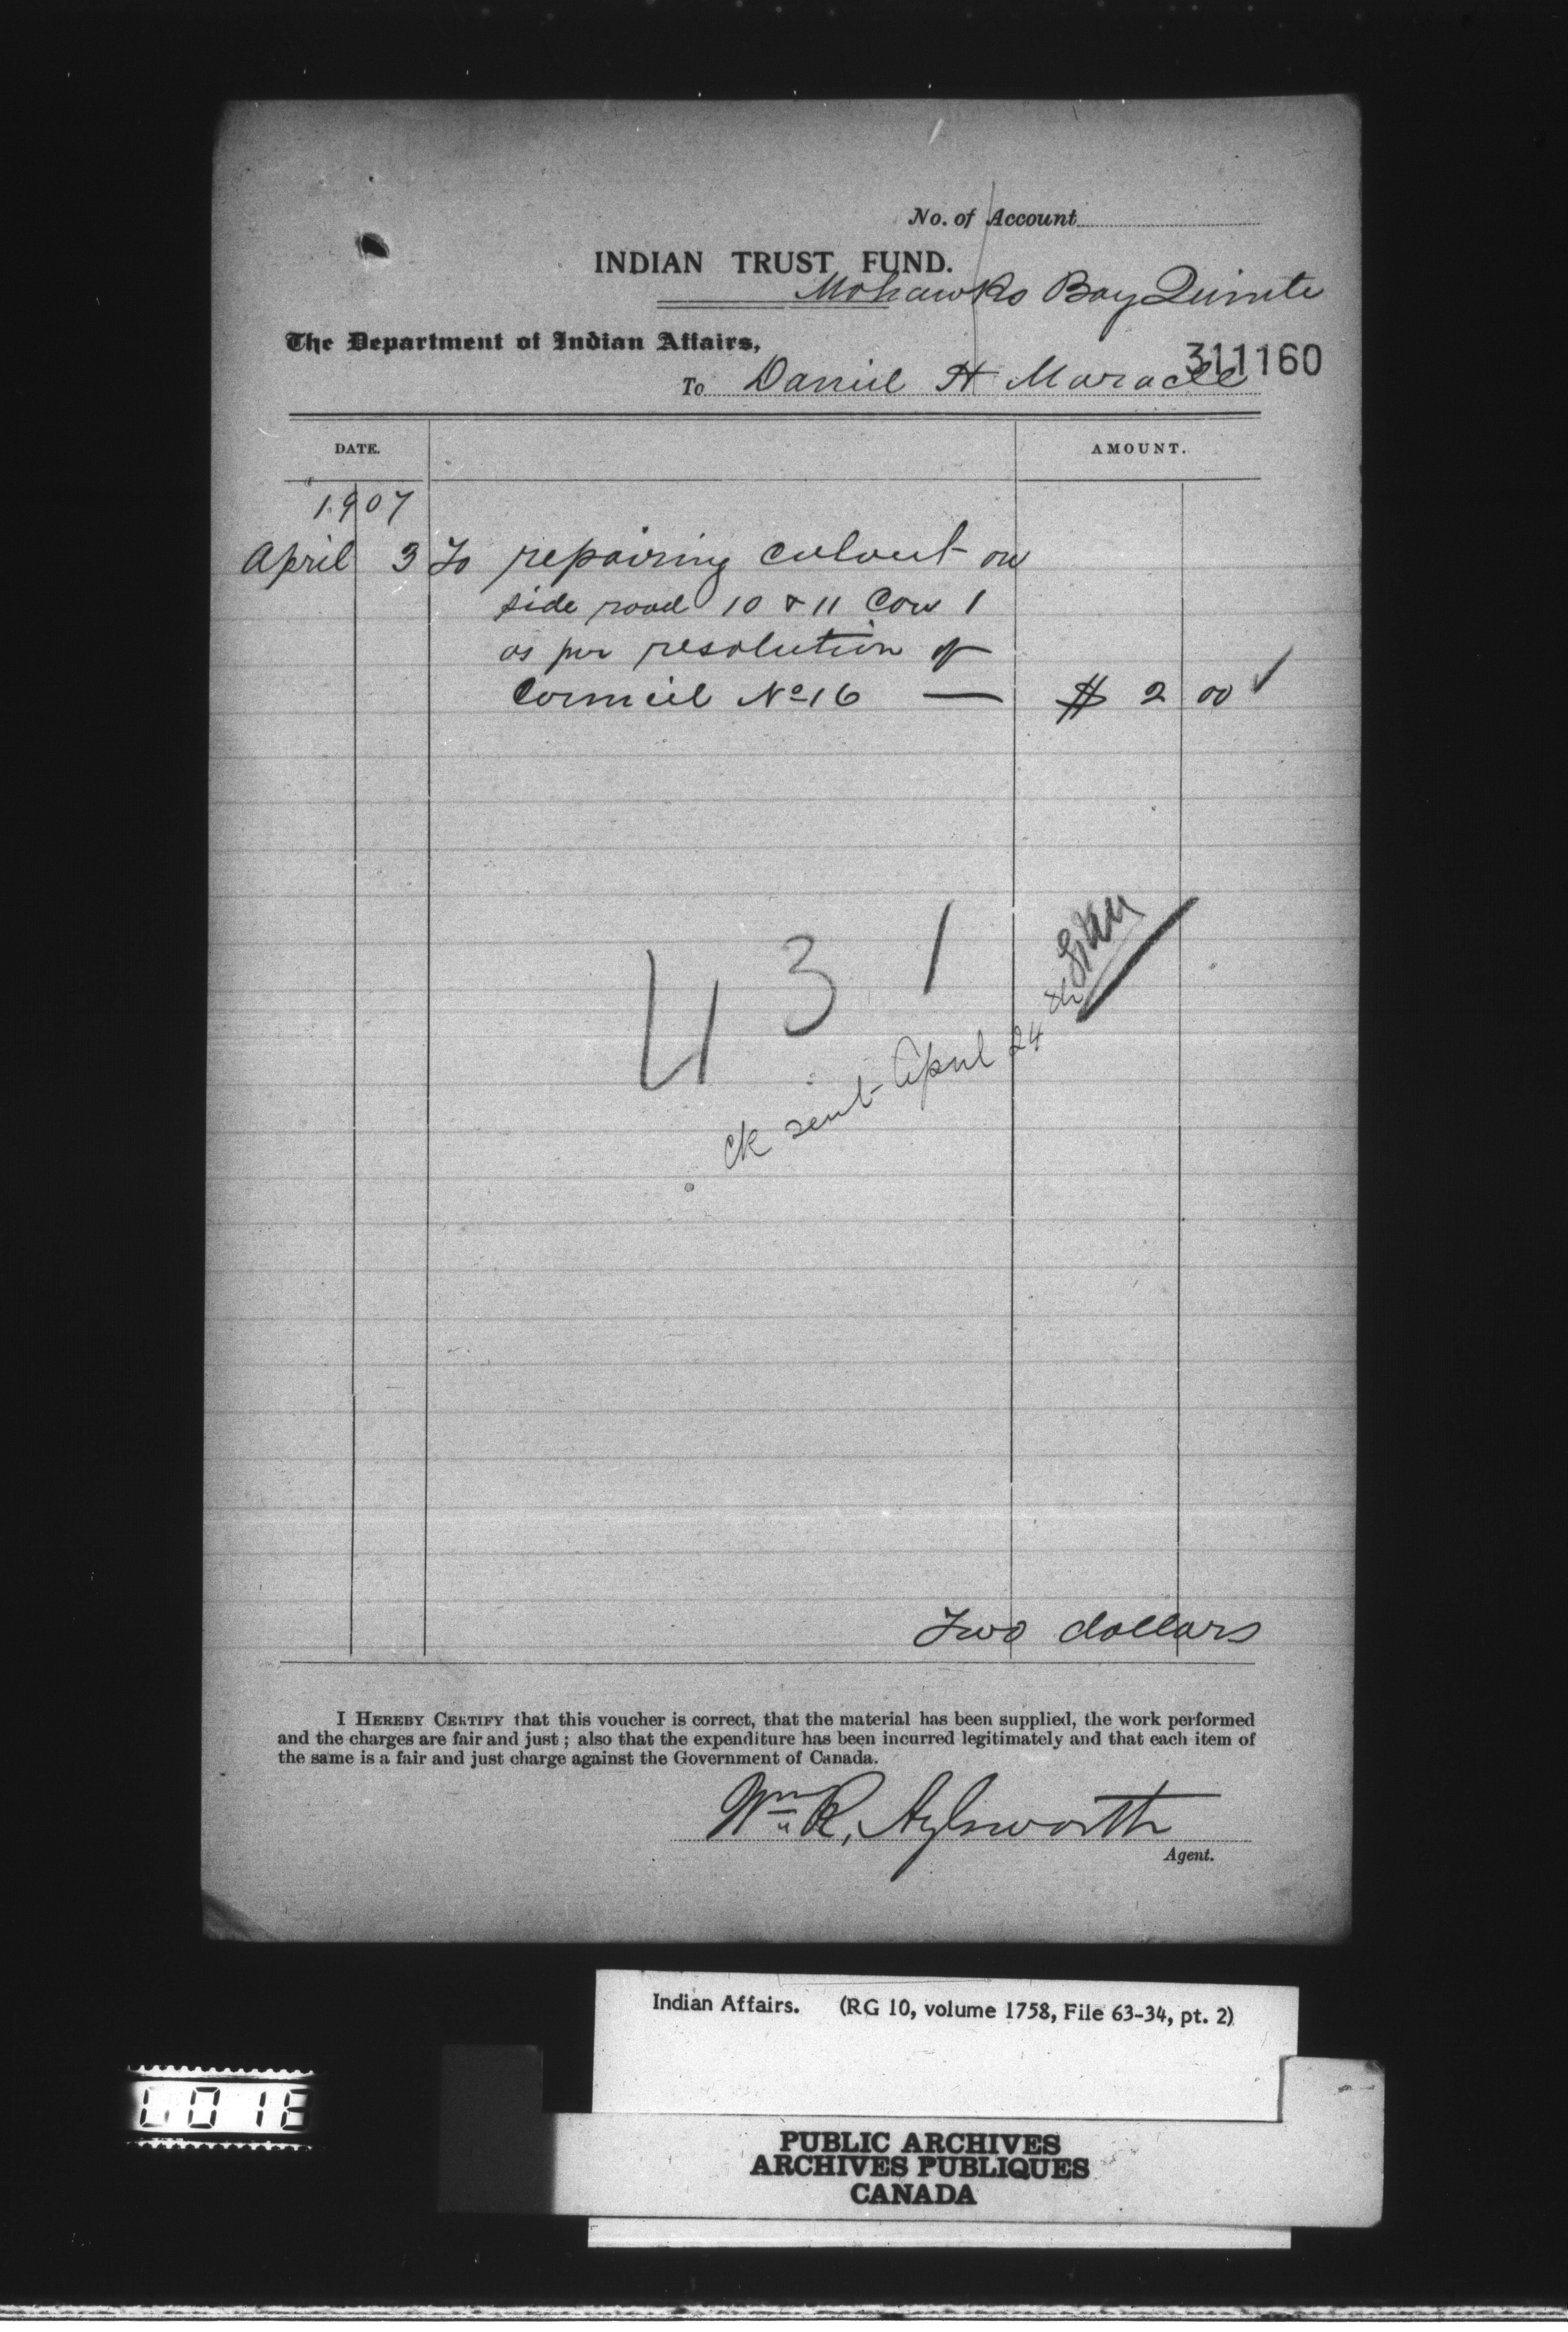 No. of Account
INDIAN TRUST FUND.
Mohawks Bay Quinte
The Department of Indian Affairs,
311160
To Daniel H Maracle
DATE. AMOUNT.
1907
April 3 To repairing culvert on
side road 10 & 11 Con 1
as per resolution of
Council No 16 — $ 2 00 ✓
431
ck sent April 24
Two dollars
I HEREBY CERTIFY that this voucher is correct, that the material has been supplied, the work performed
and the charges are fair and just; also that the expenditure has been incurred legitimately and that each item of
the same is a fair and just charge against the Government of Canada.
Wm R. Aylsworth
Agent.
Indian Affairs. (RG 10, volume 1758, File 63-34, pt. 2)
PUBLIC ARCHIVES
ARCHIVES PUBLIQUES
CANADA